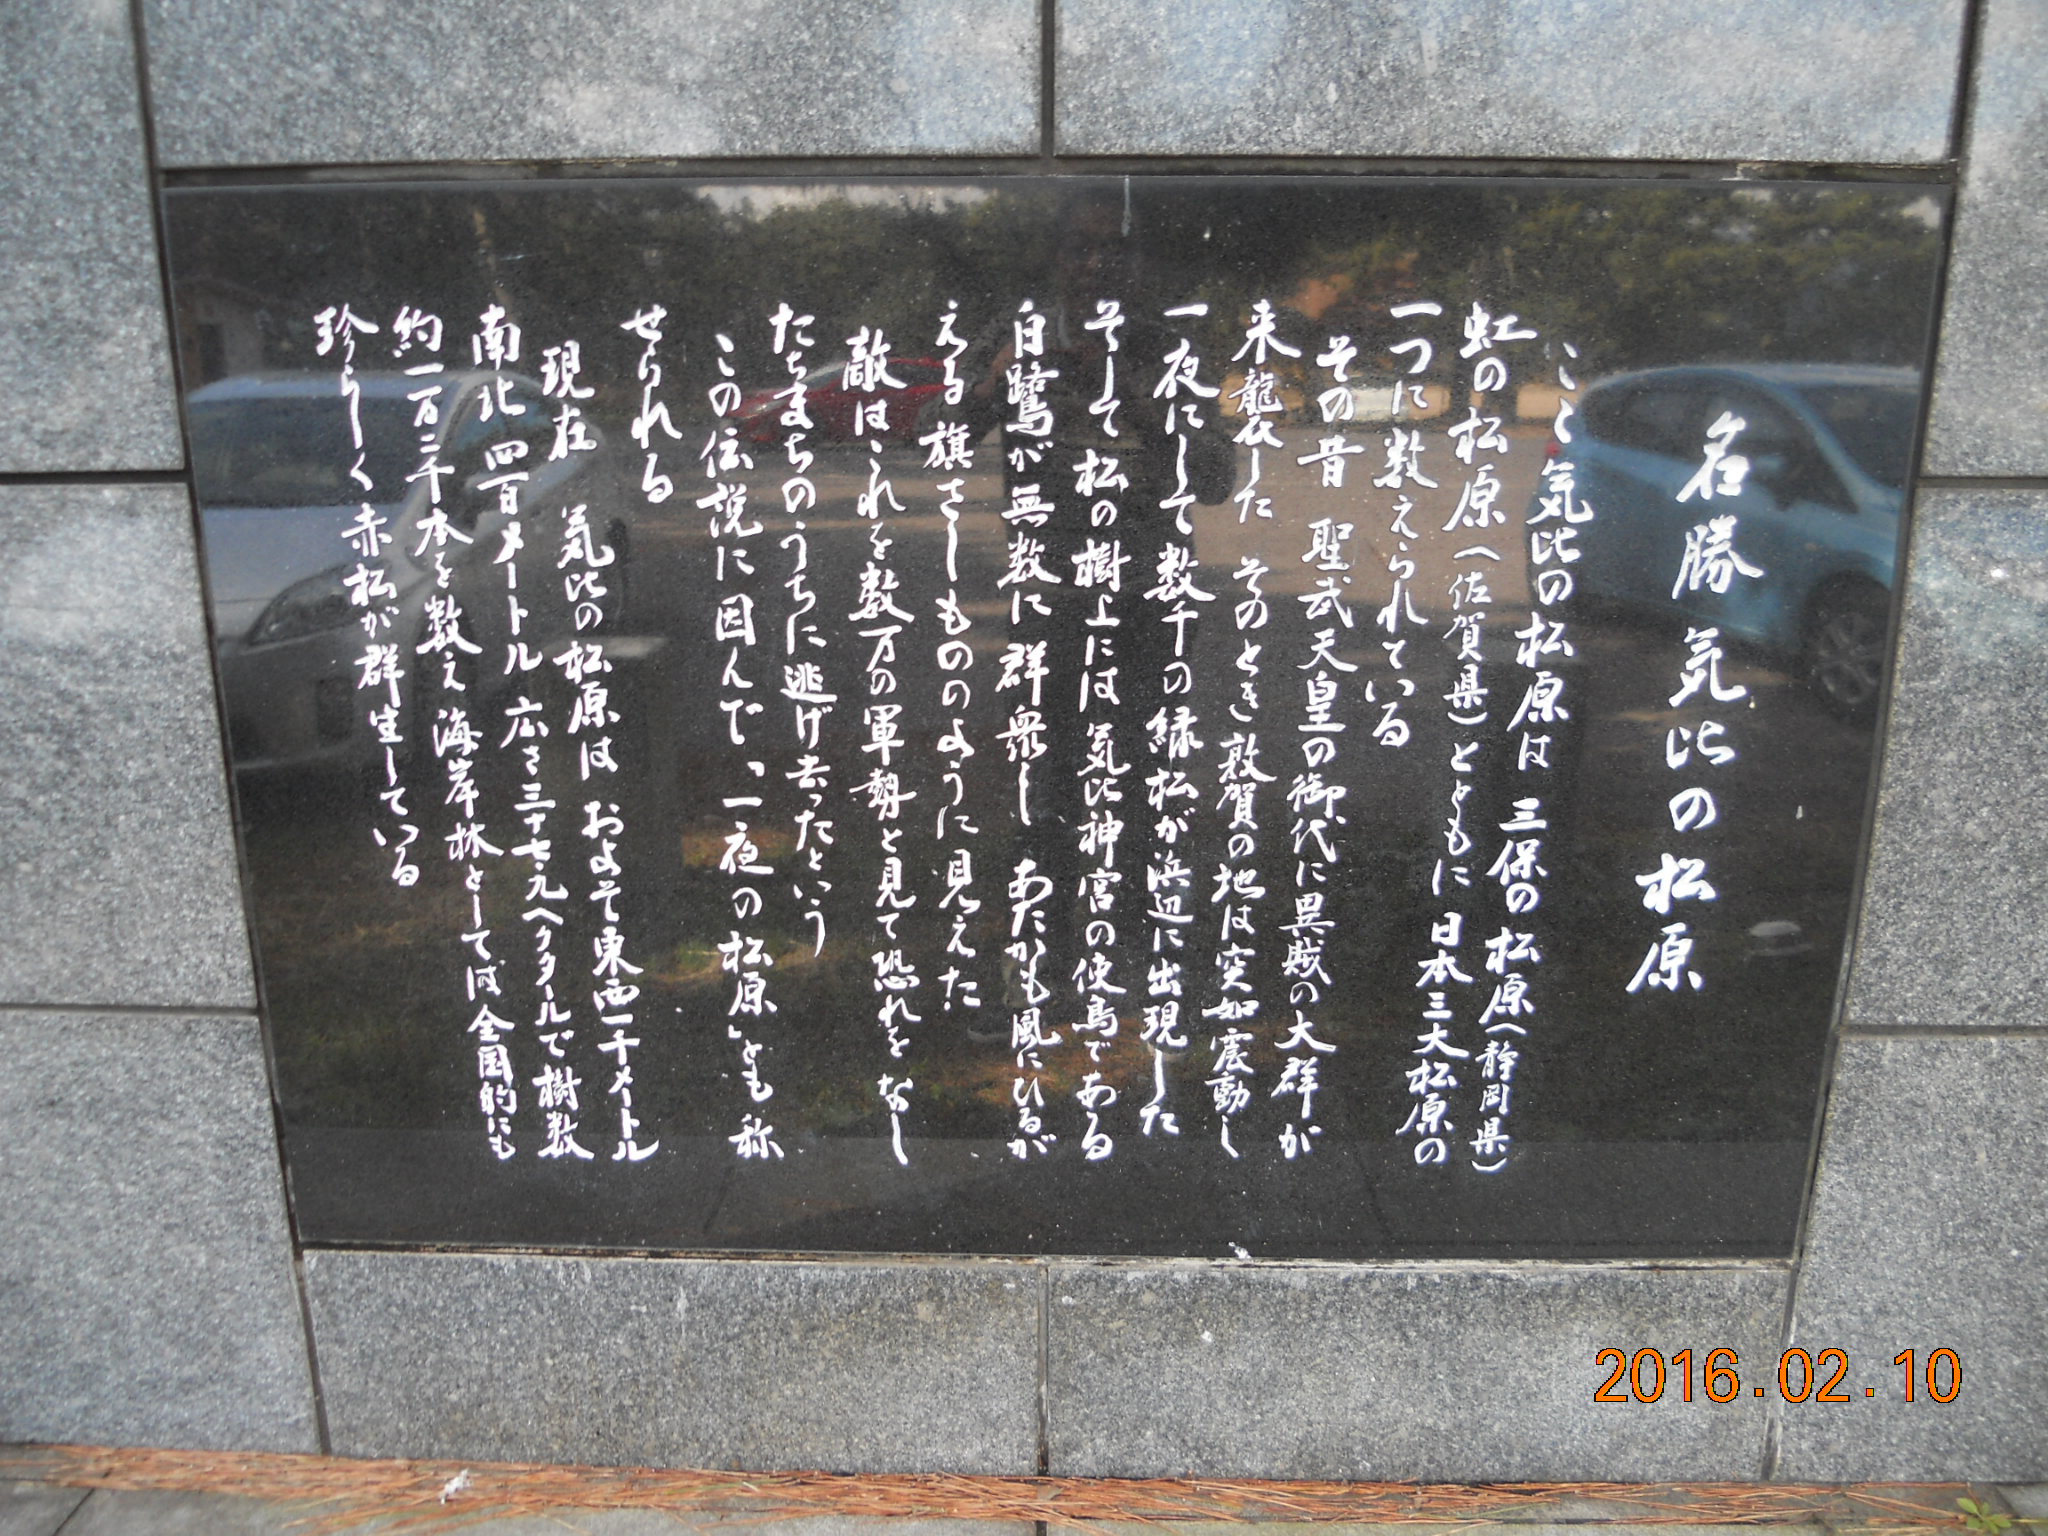 名勝 気比の松原
ここ気比の松原は 三保の松原(静岡県)
虹の松原(佐賀県)とともに 日本三大松原の
一つに数えられている
その昔 聖武天皇の御代に異賊の大群が
来襲した そのとき敦賀の地は突如震動し
一夜にして数千の緑松が浜辺に出現した
そして松の樹上には気比神宮の使鳥である
白鷺が無数に群衆し あたかも風にひるが
える旗さしもののように見えた
敵はこれを数万の軍勢と見て恐れをなし
たちまちのうちに逃げ去ったという
この伝説に因んで、「一夜の松原」とも称
せられる
現在 気比の松原は およそ東西一千メートル
南北四百メートル 広さ三十七、九ヘクタールで樹数
約一万二千本を数え 海岸林としては全国的にも
珍らしく赤松が群生している
2016.02.10